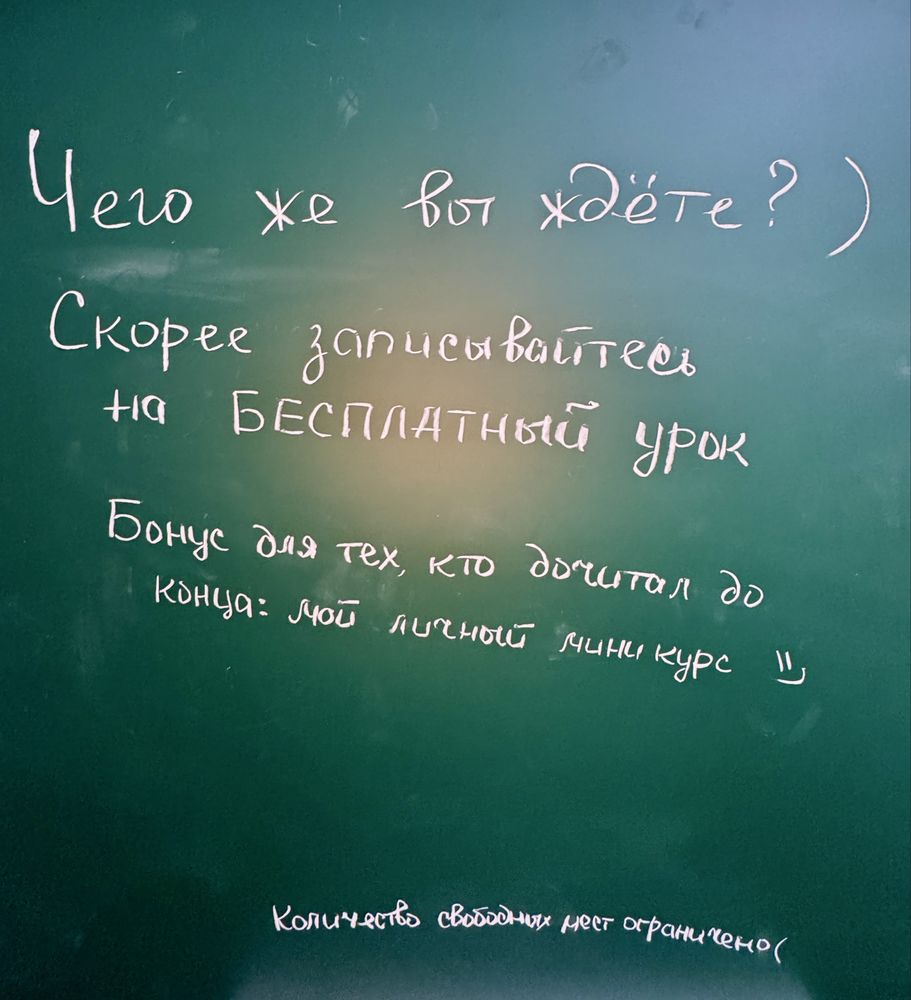 Чего же вы ждёте? )
Скорее записывайтесь
на БЕСПЛАТНЫЙ урок
Бонус для тех, кто дочитал до
конца: мой личный мини курс =)
Количество свободных мест ограничено(